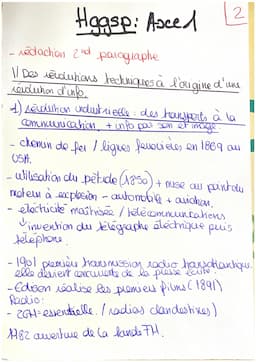 Hggsp : Axe 1
2
- rédaction 2nd paragraphe
1/ Des révolutions techniques à l'origine d'une
révolution d'info.
1) révolution industrielle : des transports à la
communication, + info par son et image.
- chemin de fer / lignes ferrovières en 1869 au
USA.
- utilisation du pétrole (1850) + mise au point du
moteur à explosion - automobile + aviation.
- eléctricité maîtrisée / télécommunications
↳ invention du télégraphe éléctrique puis
téléphone.
- 1901 première transmission radio transatlantique.
elle devient concurrente de la presse écrite.
- Edison réalise les premiers films (1891)
Radio :
- 2GM = essentielle. (radios clandestines)
1982 ouverture de la bande FM.